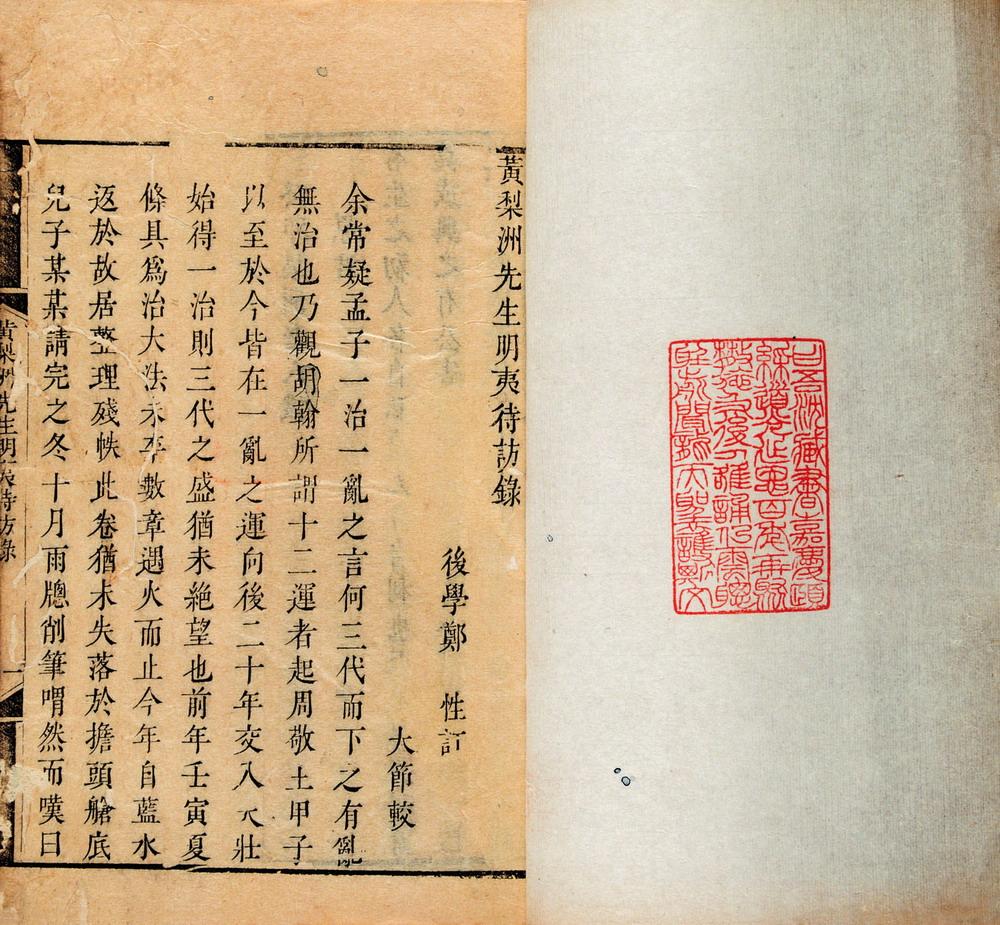 黃梨洲先生明夷待訪錄
後學鄭 性訂
大節較
余常疑孟子一治一亂之言何三代而下之有亂
無治也乃觀胡翰所謂十二運者起周敬土甲子
以至於今皆在一亂之運向後二十年交入大壯
始得一治則三代之盛猶未絕望也前年壬寅夏
條具爲治大法未卒數章遇火而止今年自藍水
返於故居整理殘帙此卷猶未失落於擔頭艙底
兒子某某請完之冬十月雨牎削筆喟然而嘆曰
黃梨洲先生明夷待訪錄
一